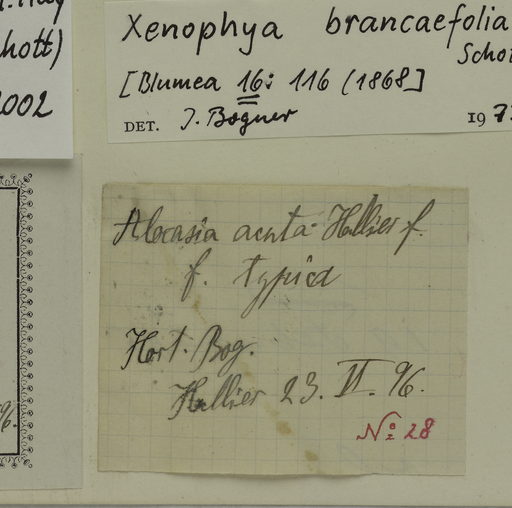 hott)
2002
Xenophya brancaefolia
Schot
[Blumea 16: 116 (1868]
DET. J. Bogner 197
Alocasia acuta Hallier f.
f. typica
Hort. Bog.
Hallier 23. VI. 96.
No 28
96.